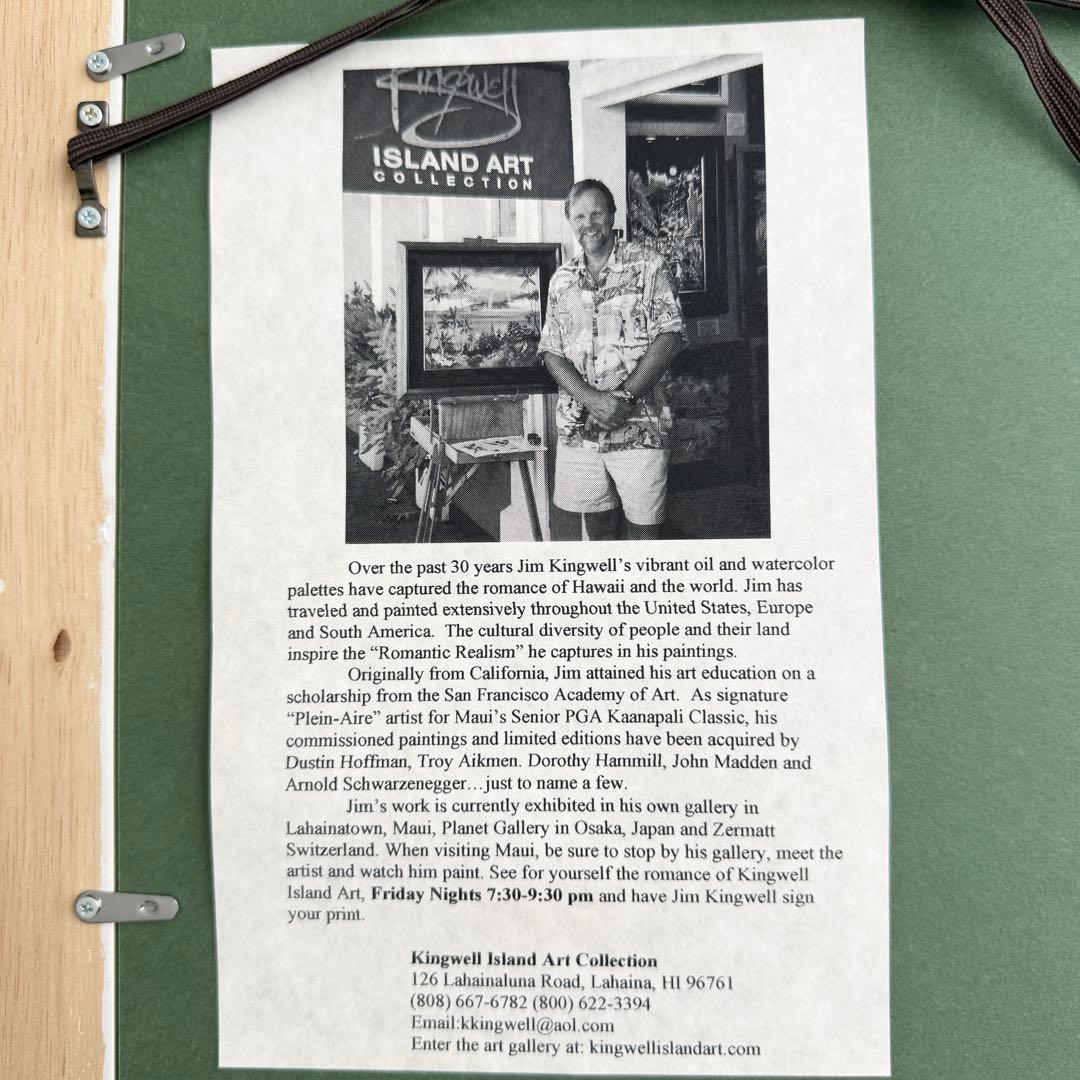 Kingwell
ISLAND ART
COLLECTION
Over the past 30 years Jim Kingwell's vibrant oil and watercolor
palettes have captured the romance of Hawaii and the world. Jim has
traveled and painted extensively throughout the United States, Europe
and South America. The cultural diversity of people and their land
inspire the “Romantic Realism” he captures in his paintings.
Originally from California, Jim attained his art education on a
scholarship from the San Francisco Academy of Art. As signature
“Plein-Aire” artist for Maui's Senior PGA Kaanapali Classic, his
commissioned paintings and limited editions have been acquired by
Dustin Hoffman, Troy Aikmen. Dorothy Hammill, John Madden and
Arnold Schwarzenegger…just to name a few.
Jim's work is currently exhibited in his own gallery in
Lahainatown, Maui, Planet Gallery in Osaka, Japan and Zermatt
Switzerland. When visiting Maui, be sure to stop by his gallery, meet the
artist and watch him paint. See for yourself the romance of Kingwell
Island Art, Friday Nights 7:30-9:30 pm and have Jim Kingwell sign
your print.
Kingwell Island Art Collection
126 Lahainaluna Road, Lahaina, HI 96761
(808) 667-6782 (800) 622-3394
Email:kkingwell@aol.com
Enter the art gallery at: kingwellislandart.com